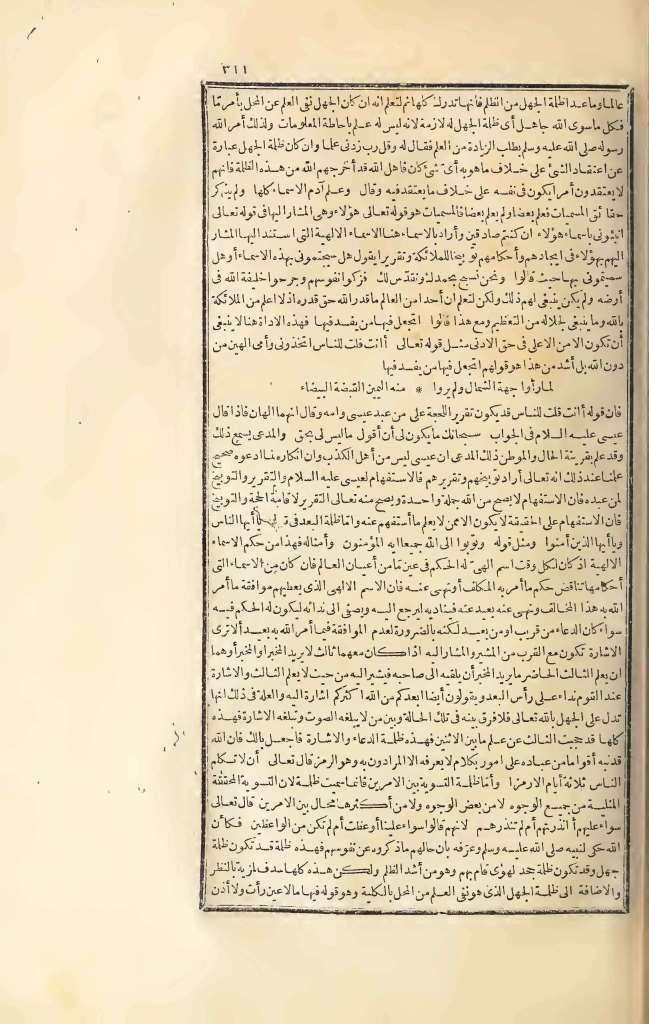 ٣١١
عالما وما عدا ظلمة الجهل من الظلم فانها تدرك كلها ثم لتعلم انه ان كان الجهل نفي العلم عن المحل بأمر تما
فكل ما سوى الله جاهل أى ظلمة الجهل له لازمة لانه ليس له علم باحاطة المعلومات ولذلك أمر الله
رسوله صلى الله عليه وسلم بطلب الزيادة من العلم فقال له وقل رب زدنى علما وان كان ظلمة الجهل عبارة
عن اعتقاد الشئ على خلاف ما هو به أى شئ كان فاهل الله قد أخرجهم الله من هذه الظلمة فانهم
لا يعتقدون أمرا يكون فى نفسه على خلاف ما يعتقد فيه وقال وعلم آدم الاسماء كلها ولم يذكر
حقائق المسميات فعلم بعضا ولم يعلم بعضا فالمسميات هو قوله تعالى هؤلاء وهى المشار اليها فى قوله تعالى
انبئونى باسماء هؤلاء ان كنتم صادقين وأراد بالاسماء هنا الاسماء الالهية التى استند اليها المشار
اليهم بهؤلاء فى ايجادهم وأحكامهم توبيخا للملائكة وتقريرا يقول هل سبحتمونى بهذه الاسماء أو هل
سميتمونى بها حيث قالوا ونحن نسبح بحمدك ونقدس لك فزكوا نفوسهم وجرحوا خليفة الله فى
أرضه ولم يكن ينبغى لهم ذلك ولكن لتعلم ان أحدا من العالم ما قدر الله حق قدره اذ لا اعلم من الملائكة
بالله وما ينبغى لجلاله من التعظيم ومع هذا قالوا اتجعل فيها من يفسد فيها فهذه الاداة هنا لا ينبغى
أن تكون الا من الاعلى فى حق الادنى مثل قوله تعالى أانت قلت للناس اتخذونى وأمى الهين من
دون الله بل أشد من هذا هو قولهم اتجعل فيها من يفسد فيها
لما رأوا جهة الشمال ولم يروا * منه اليمين القبضة البيضاء
فان قوله أانت قلت للناس قد يكون تقرير اللحجة على من عبد عيسى وامه وقال انهما الهان فاذا قال
عيسى عليه السلام فى الجواب سبحانك ما يكون لى أن أقول ما ليس لى بحق والمدعى يسمع ذلك
وقد علم بقرينة الحال والموطن ذلك المدعى ان عيسى ليس من أهل الكذب وان انكاره لما ادعوه صحيح
علمنا عند ذلك انه تعالى أراد توبيخهم وتقريرهم فالاستفهام لعيسى عليه السلام والتقرير والتوبيخ
لمن عبده فان الاستفهام لا يصح من الله جملة واحدة ويصح منه تعالى التقرير لاقامة الحجة والتوبيخ
فان الاستفهام على الحقيقة لا يكون الا ممن لا يعلم ما استفهم عنه وأما ظلمة البعد فى يا أيها الناس
ويا أيها الذين آمنوا ومثل قوله وتوبوا الى الله جميعا ايه المؤمنون وأمثاله فهذا من حكم الاسماء
الالهية اذ كان لكل وقت اسم الهى له الحكم فى عين ما من أعيان العالم فان كان من الاسماء التى
أحكامها تناقض حكم ما أمر به المكلف أو نهى عنه فان الاسم الالهى الذى يعطيهم موافقة ما أمر
الله به هذا المخالف ونهى عنه بعيد عنه فيناديه ليرجع اليه ويصغى الى ندائه ليكون له الحكم فيه
سواء كان الدعاء من قريب او من بعيد لكنه بالضرورة لعدم الموافقة فيما أمر الله به بعيد ألا ترى
الاشارة تكون مع القرب من المشير والمشار اليه اذا كان معهما ثالث لا يريد المخبر او المخبر أو هما
ان يعلم الثالث الحاضر ما يريد المخبر أن يلقيه الى صاحبه فيشير اليه من حيث لا يعلم الثالث والاشارة
عند القوم نداء على رأس البعد ويقولون أيضا أبعدكم من الله اكثركم اشارة اليه والعلة فى ذلك انها
تدل على الجهل بالله تعالى فلا فرق بينه فى تلك الحالة وبين من لا يبلغه الصوت وتبلغه الاشارة فهذه
كلها قد حجبت الثالث عن علم ما بين الاثنين فهذه ظلمة الدعاء والاشارة فاجعل بالك فان الله
قد نبه أقواما من عباده على امور بكلام لا يعرفه الا المرادون به وهو الرمز قال تعالى أن لا تكلم
الناس ثلاثة أيام الا رمزا وأما ظلمة التسوية بين الامرين فانما سميت ظلمة لان التسوية المحققة
المثلية من جميع الوجوه لا من بعض الوجوه ولا من أكثرها محال بين الامرين قال تعالى
سواء عليهم أأنذرتهم أم لم تنذرهم لانهم قالوا سواء علينا أوعظت أم لم تكن من الواعظين فكأن
الله حكى لنبيه صلى الله عليه وسلم وعرفه بان حالهم ما ذكروه عن نفوسهم فهذه ظلمة قد تكون ظلمة
جهل وقد تكون ظلمة جحد لهوى قام بهم وهو من أشد الظلم ولكن هذه كلها سدف لمزية بالنظر
والاضافة الى ظلمة الجهل الذى هو نفى العلم من المحل بالكلية وهو قوله فيها ما لا عين رأت ولا أذن